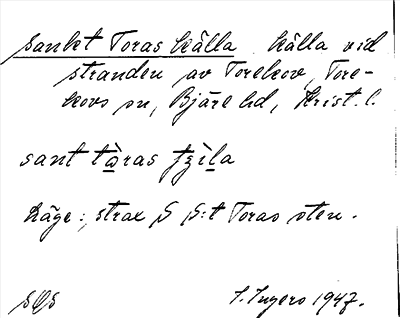 Sankt Toras källa. Källa vid
stranden av Torekov, Tore-
kovs sn, Bjäre hd, Krist. l.
sant tὼras
Läge: strax S S:t Toras sten.
1947.